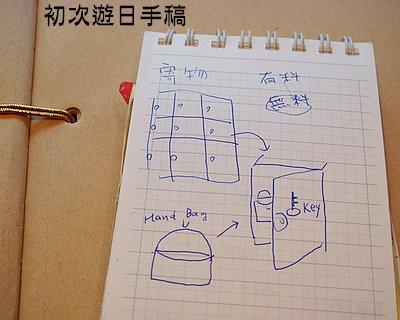 初次遊日手稿
寄物 有料
無料
Key
Hand Bag